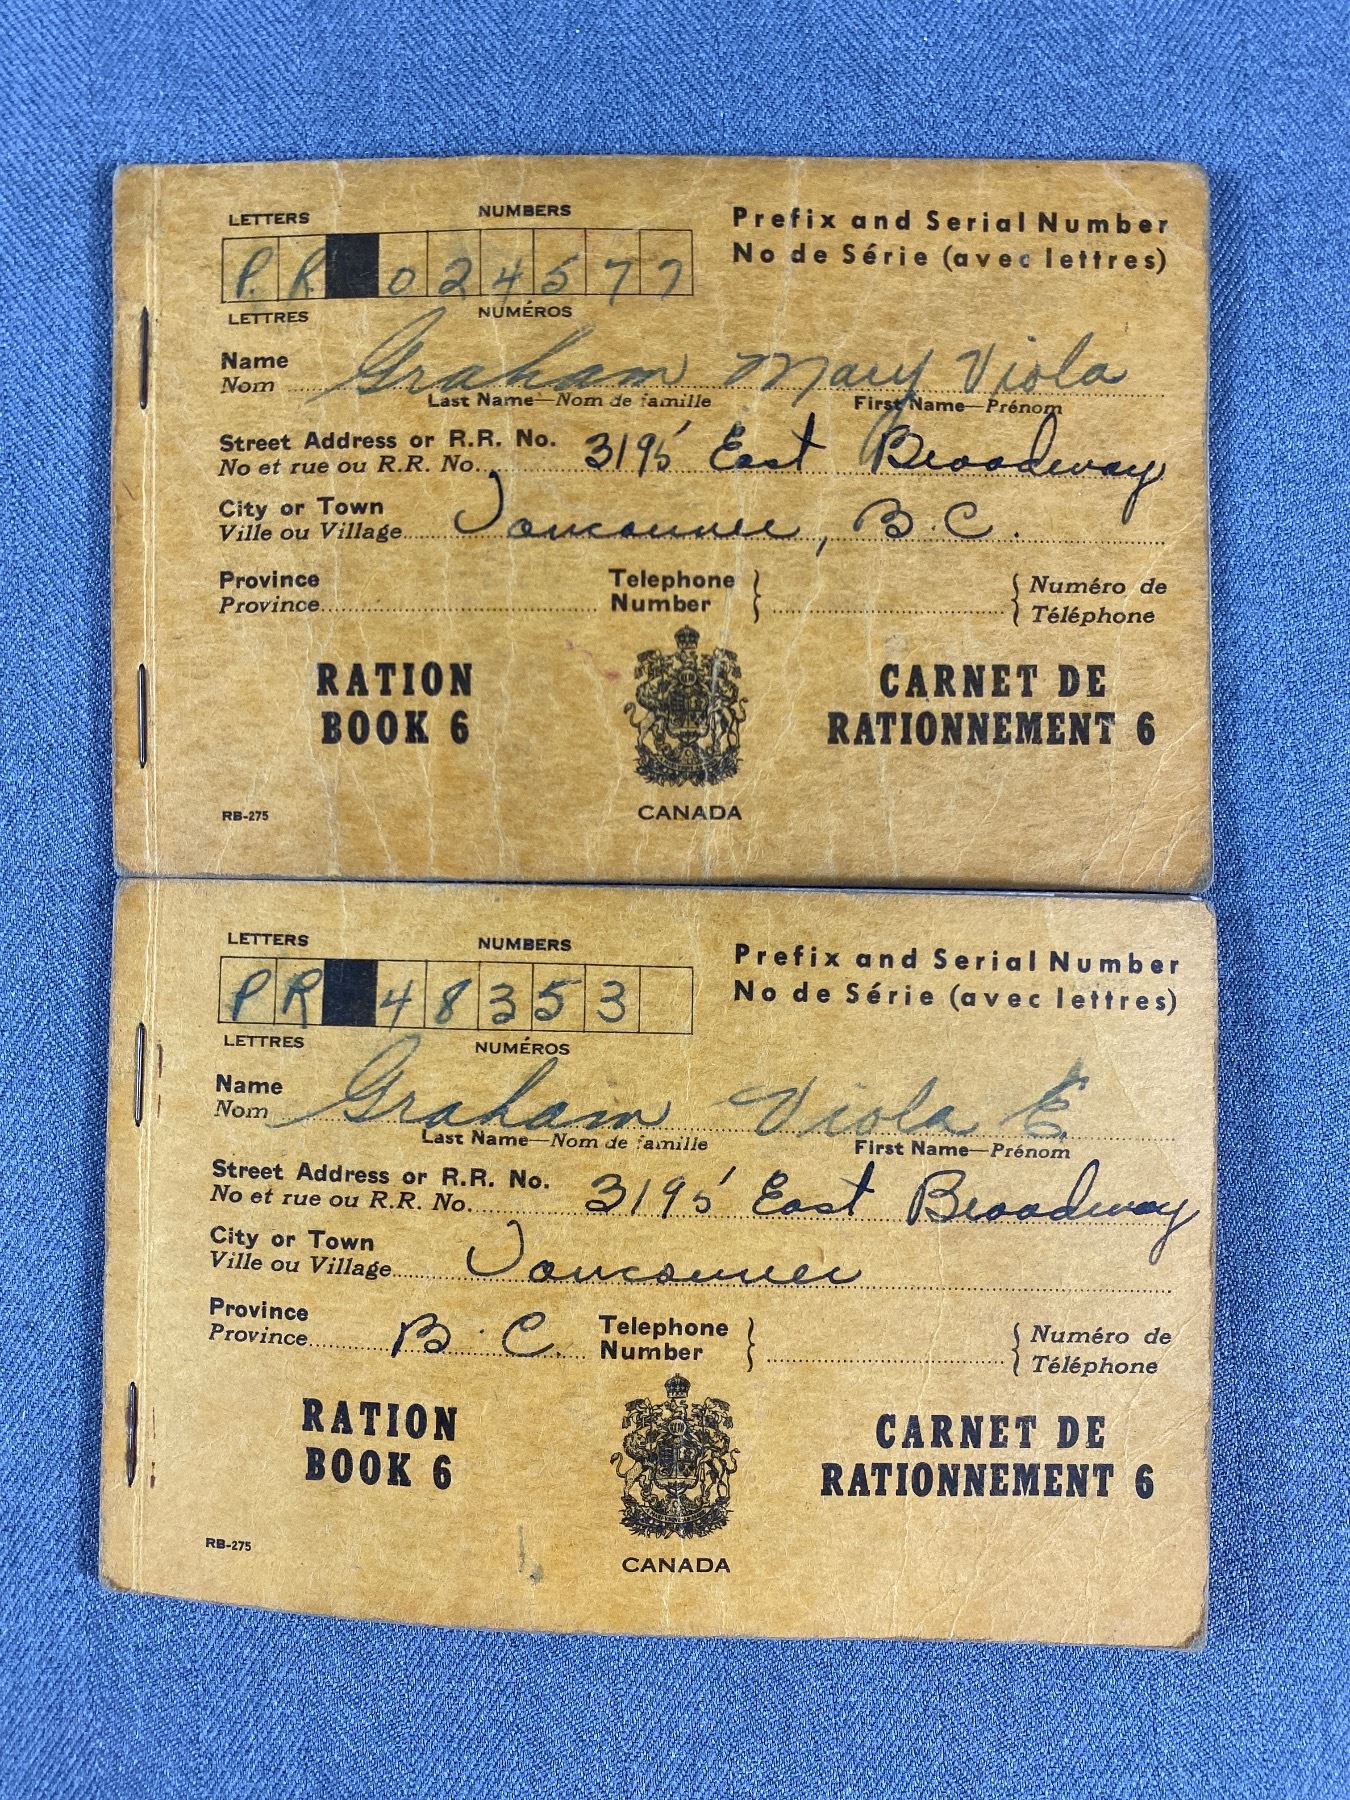 LETTERS NUMBERS Prefix and Serial Number
P. R. 0 2 4 5 7 7 No de Série (avec lettres)
LETTRES NUMÉROS
Name Graham Mary Viola
Nom
Last Name—Nom de famille First Name—Prénom
Street Address or R.R. No. 3195 East Broadway
No et rue ou R.R. No.
City or Town Vancouver, B.C.
Ville ou Village
Province Telephone Numéro de
Province Number Téléphone
RATION CARNET DE
BOOK 6 RATIONNEMENT 6
RB-275 CANADA
LETTERS NUMBERS Prefix and Serial Number
P R 4 8 3 5 3 No de Série (avec lettres)
LETTRES NUMÉROS
Name Graham Viola E.
Nom
Last Name—Nom de famille First Name—Prénom
Street Address or R.R. No. 3195 East Broadway
No et rue ou R.R. No.
City or Town Vancouver
Ville ou Village
Province B.C. Telephone Numéro de
Province Number Téléphone
RATION CARNET DE
BOOK 6 RATIONNEMENT 6
RB-275 CANADA